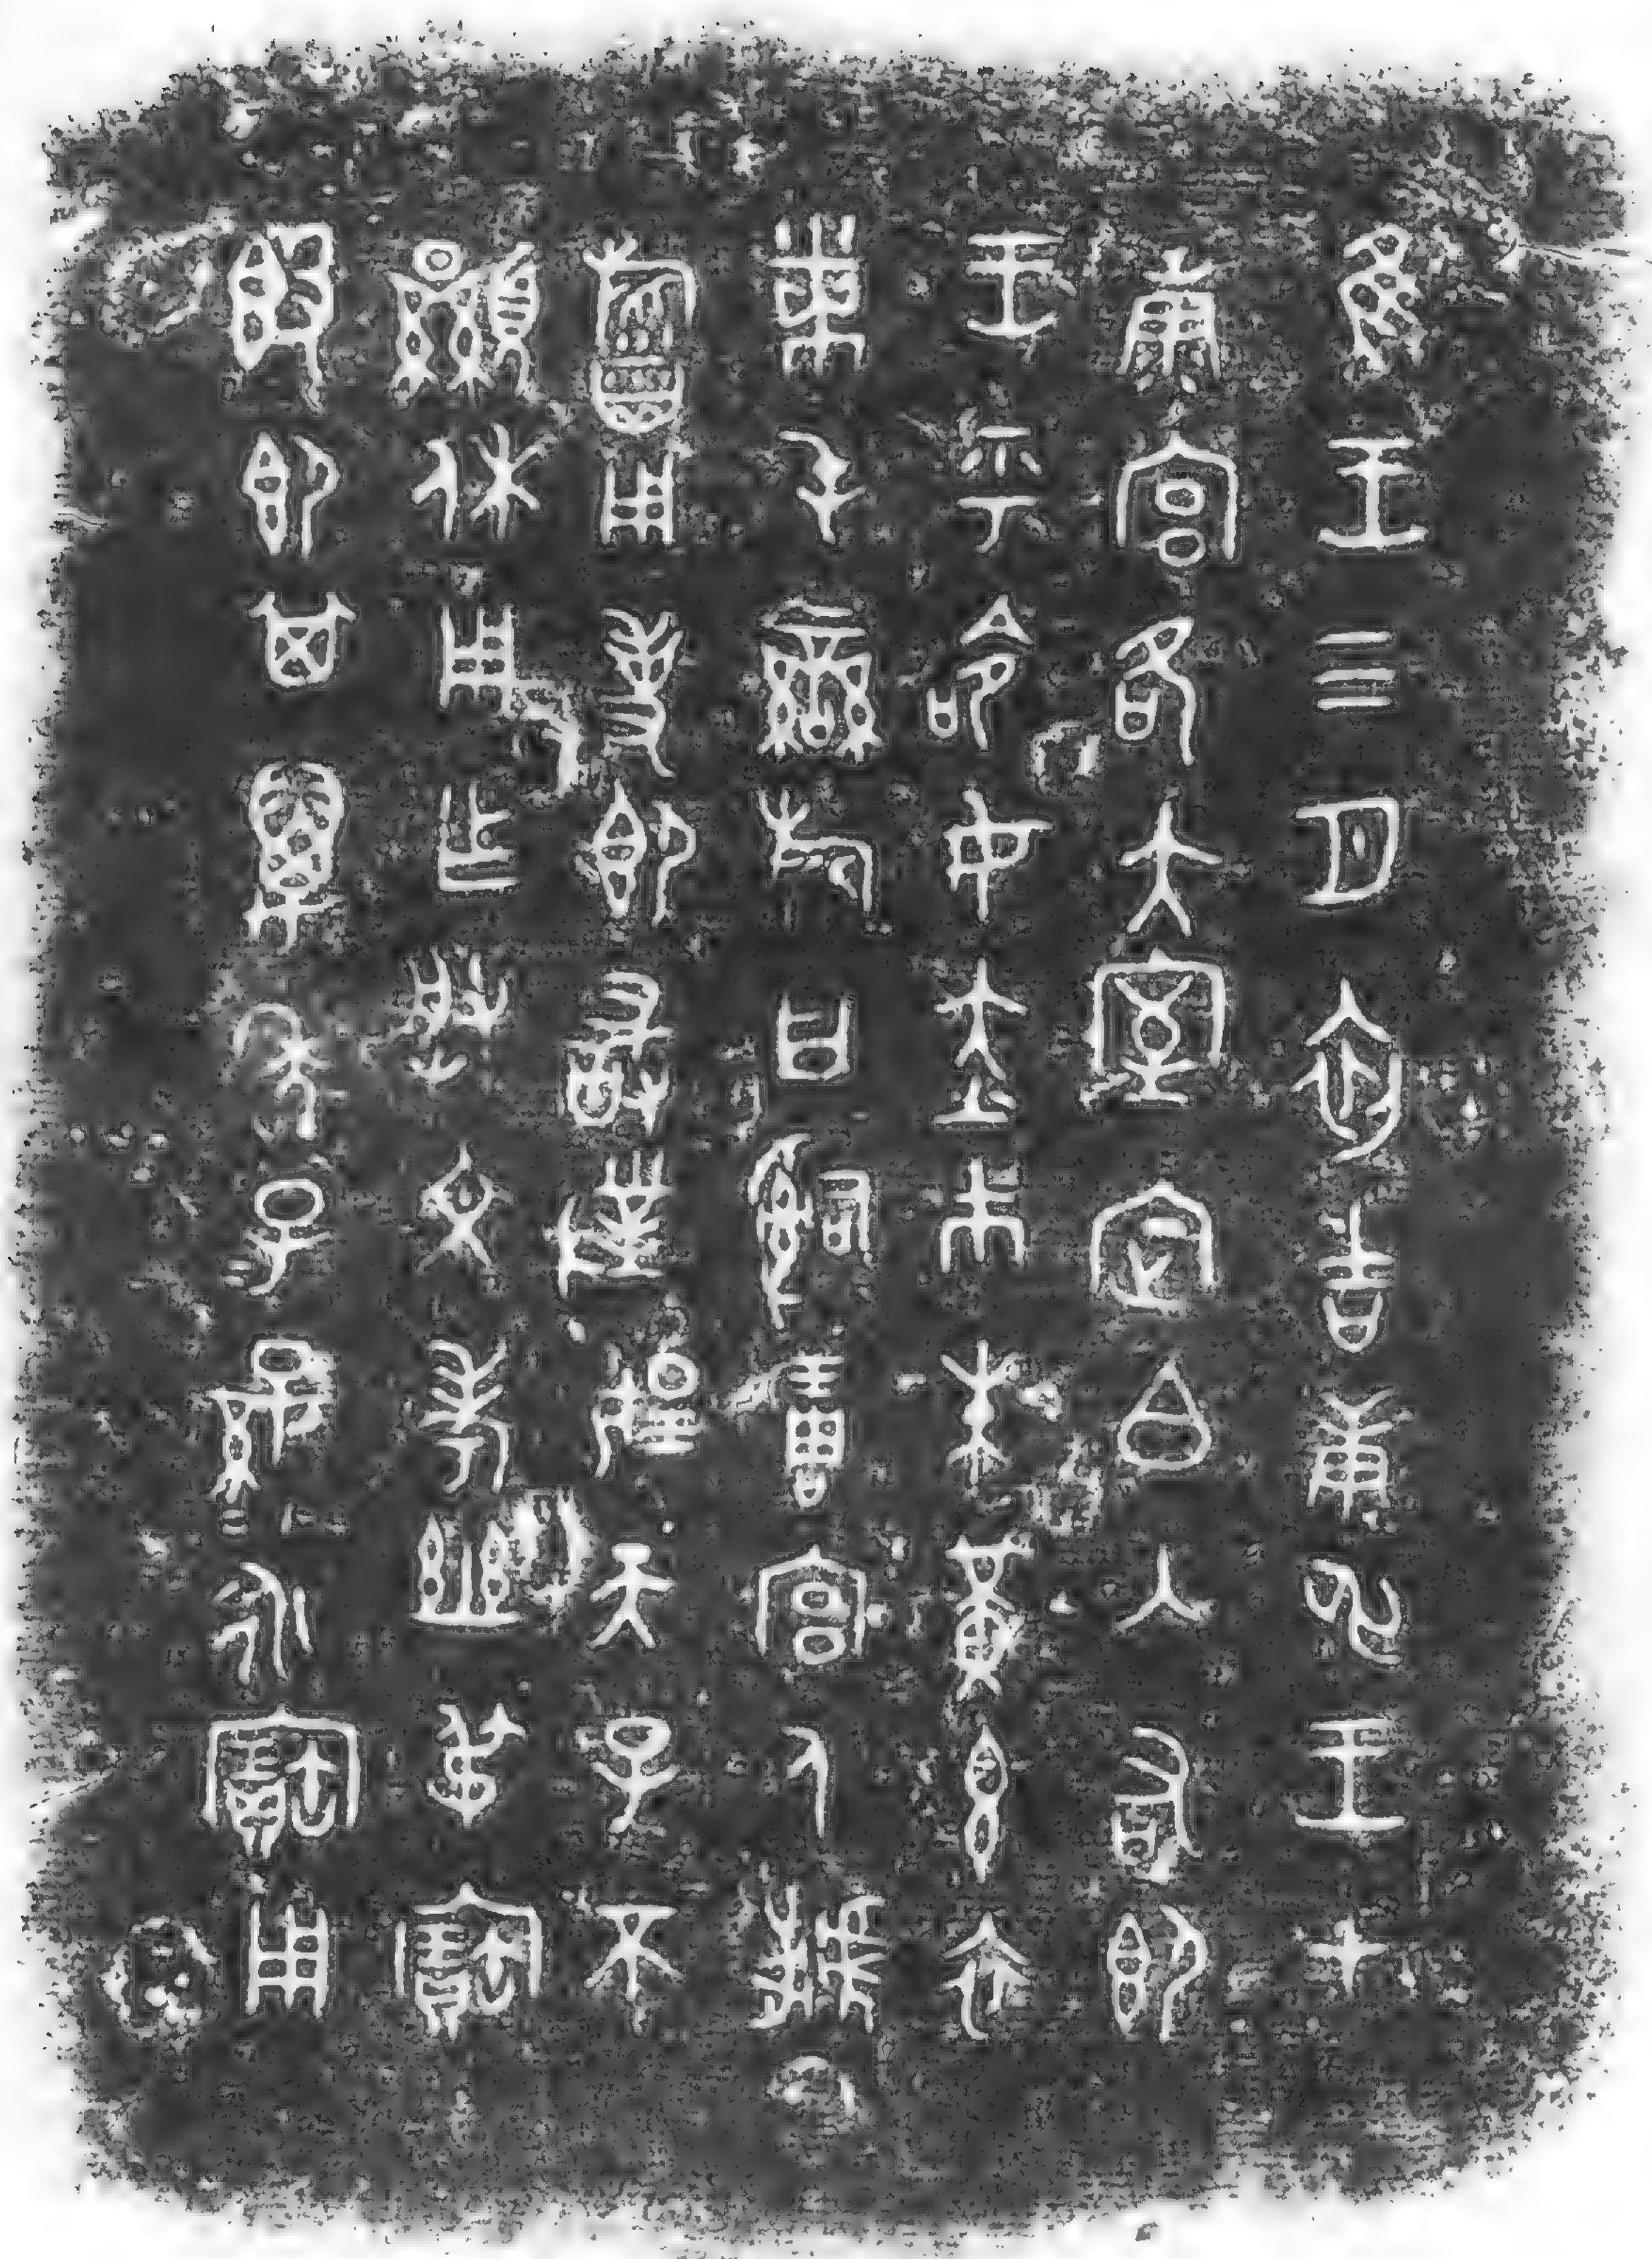 隹王三月初吉庚申王才
康宮各大室定白入右即
王乎命女赤巿朱黃玄衣
黹屯䜌旂曰𤔲琱宮人虢
稻用事即敢對揚天子不
顯休用乍朕文考幼弔寶
𣪘即其萬年子孫永寶用